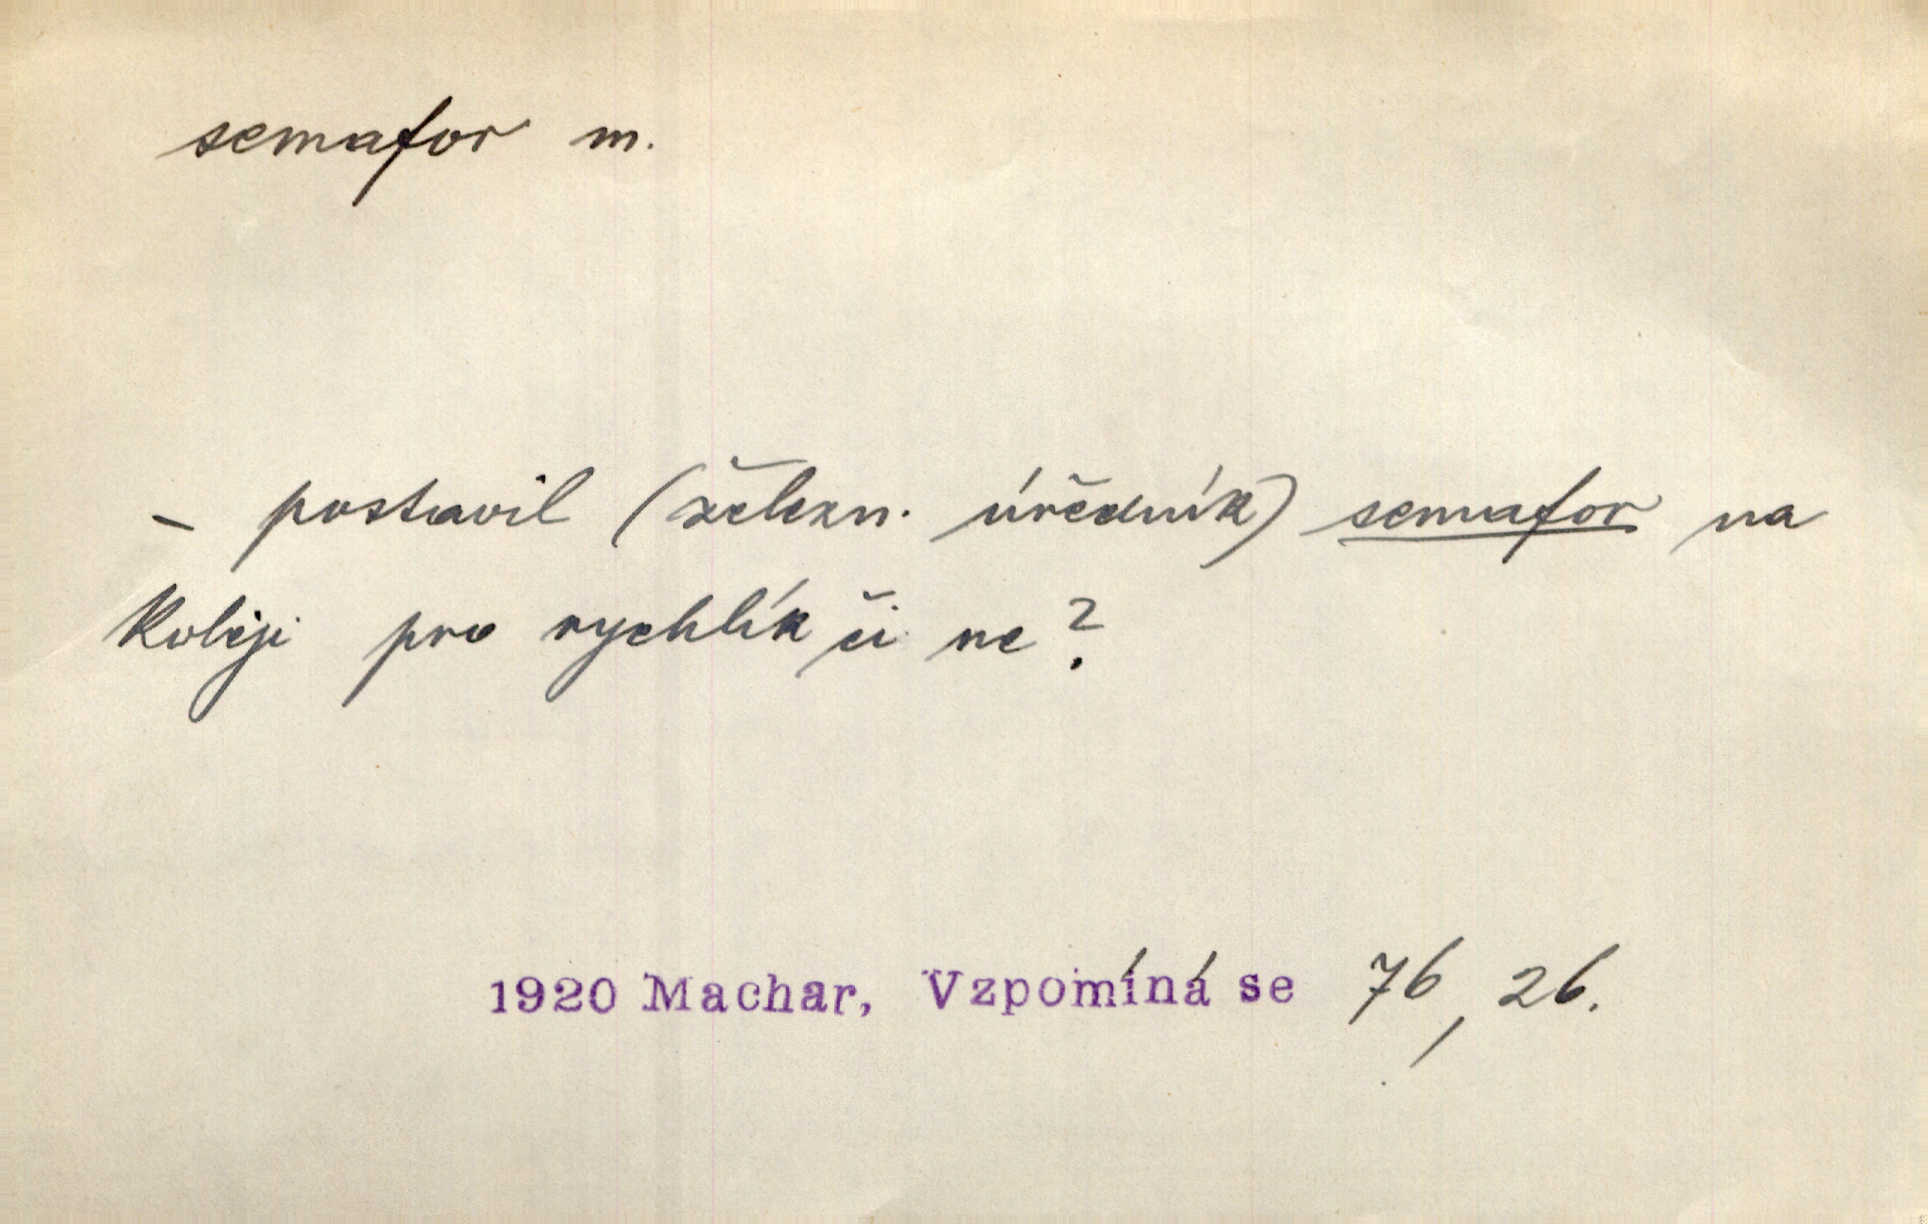 semafor m.
– postavil (želežn. úředník) semafor na
koleji pro rychlík či ne?
1920 Machar, Vzpomíná se 76, 26.